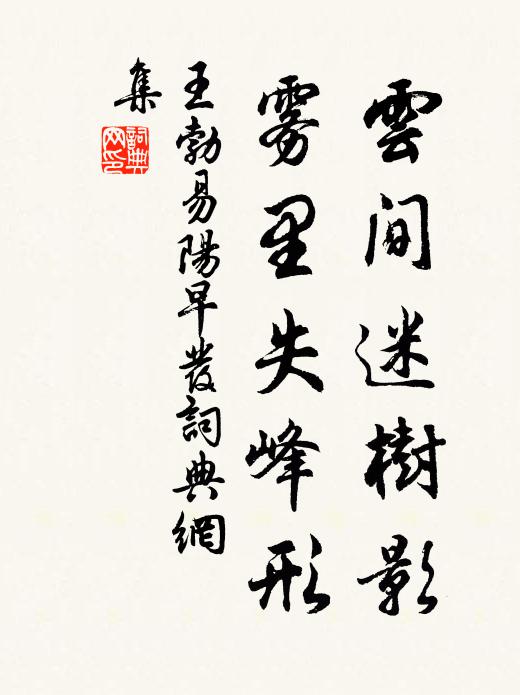 雲間迷樹影
雾里失峰形
王勃易陽早發詞典網
集
詞典網印